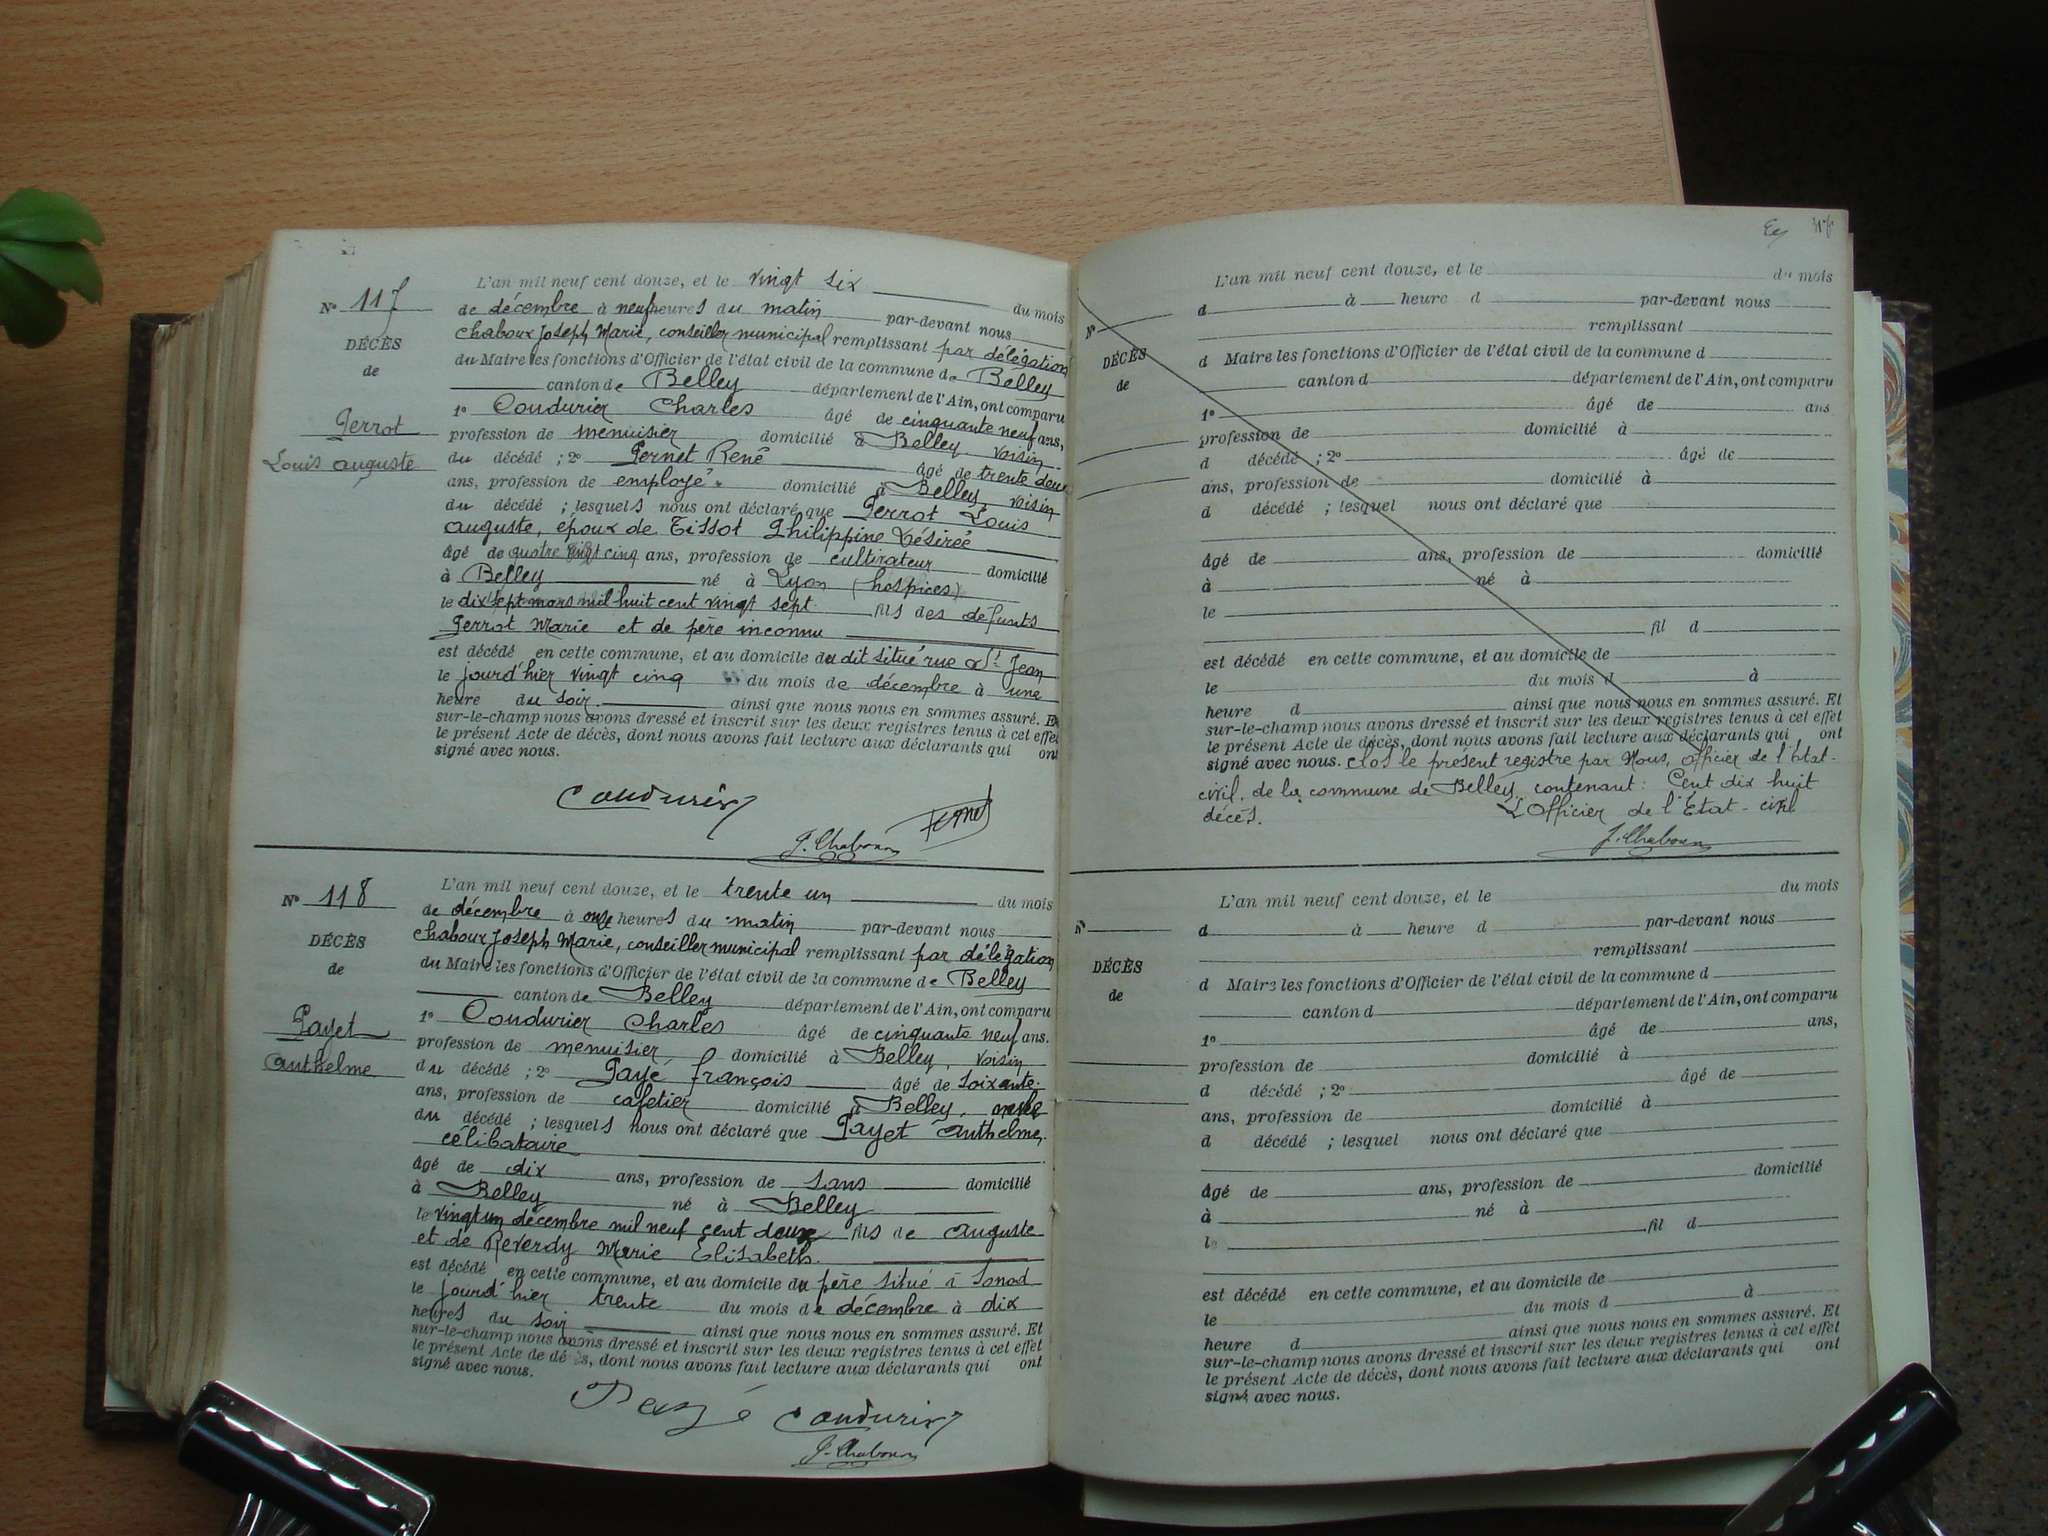 L'an mil neuf cent douze, et le vingt six du mois
N° 117 de décembre à neuf heures du matin par-devant nous
Chaboux Joseph Marie, conseiller municipal remplissant par délégation
DÉCÈS du Maire les fonctions d'Officier de l'état civil de la commune de Belley
de canton de Belley département de l'Ain, ont comparu
1° Coudurier Charles âgé de cinquante neuf ans,
Perrot profession de menuisier domicilié à Belley voisin
Louis auguste du décédé ; 2° Pernet René âgé de trente deux
ans, profession de employé domicilié à Belley, voisin
du décédé ; lesquels nous ont déclaré que Perrot Louis
auguste, époux de Tissot Philippine Désirée
âgé de quatre vingt cinq ans, profession de cultivateur domicilié
à Belley né à Lyon (hospices)
le dix sept mars mil huit cent vingt sept fils des défunts
Perrot Marie et de père inconnu
est décédé en cette commune, et au domicile du dit situé rue St Jean
le jourd'hier vingt cinq du mois de décembre à une
heure du soir. ainsi que nous nous en sommes assuré. Et
sur-le-champ nous avons dressé et inscrit sur les deux registres tenus à cet effet
le présent Acte de décès, dont nous avons fait lecture aux déclarants qui ont
signé avec nous.
Coudurier
Pernet
J. Chaboux
L'an mil neuf cent douze, et le trente un du mois
N° 118 de décembre à onze heures du matin par-devant nous
Chaboux Joseph Marie, conseiller municipal remplissant par délégation
DÉCÈS du Maire les fonctions d'Officier de l'état civil de la commune de Belley
de canton de Belley département de l'Ain, ont comparu
1° Coudurier Charles âgé de cinquante neuf ans.
Payet profession de menuisier domicilié à Belley, voisin
anthelme du décédé ; 2° Payé françois âgé de soixante
ans, profession de cafetier domicilié à Belley, oncle
du décédé ; lesquels nous ont déclaré que Payet anthelme,
célibataire
âgé de dix ans, profession de sans domicilié
à Belley né à Belley
le vingt un décembre mil neuf cent deux fils de auguste
et de Reverdy Marie Elisabeth.
est décédé en cette commune, et au domicile du père situé à Sonod
le jourd'hier trente du mois de décembre à dix
heures du soir ainsi que nous nous en sommes assuré. Et
sur-le-champ nous avons dressé et inscrit sur les deux registres tenus à cet effet
le présent Acte de décès, dont nous avons fait lecture aux déclarants qui ont
signé avec nous.
Coudurier
J. Chaboux
L'an mil neuf cent douze, et le du mois
N° d à heure d par-devant nous
remplissant
DÉCÈS d Maire les fonctions d'Officier de l'état civil de la commune d
de canton d département de l'Ain, ont comparu
1° âgé de ans
profession de domicilié à
d décédé ; 2° âgé de
ans, profession de domicilié à
d décédé ; lesquel nous ont déclaré que
âgé de ans, profession de domicilié
à né à
le
fil d
est décédé en cette commune, et au domicile de
le du mois d à
heure d ainsi que nous nous en sommes assuré. Et
sur-le-champ nous avons dressé et inscrit sur les deux registres tenus à cet effet
le présent Acte de décès, dont nous avons fait lecture aux déclarants qui ont
signé avec nous. Clos le présent registre par Nous, officier de l'état-
civil, de la commune de Belley contenant : Cent dix huit
décès. L'Officier de l'Etat-civil
J. Chaboux
L'an mil neuf cent douze, et le du mois
N° d à heure d par-devant nous
remplissant
DÉCÈS d Maire les fonctions d'Officier de l'état civil de la commune d
de canton d département de l'Ain, ont comparu
1° âgé de ans,
profession de domicilié à
d décédé ; 2° âgé de
ans, profession de domicilié à
d décédé ; lesquel nous ont déclaré que
âgé de ans, profession de domicilié
à né à
le fil d
est décédé en cette commune, et au domicile de
le du mois d à
heure d ainsi que nous nous en sommes assuré. Et
sur-le-champ nous avons dressé et inscrit sur les deux registres tenus à cet effet
le présent Acte de décès, dont nous avons fait lecture aux déclarants qui ont
signé avec nous.